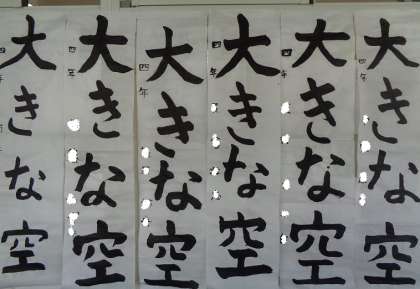 大きな空
四年
大きな空
四年
大きな空
四年
大きな空
四年
大きな空
四年
大きな空
四年